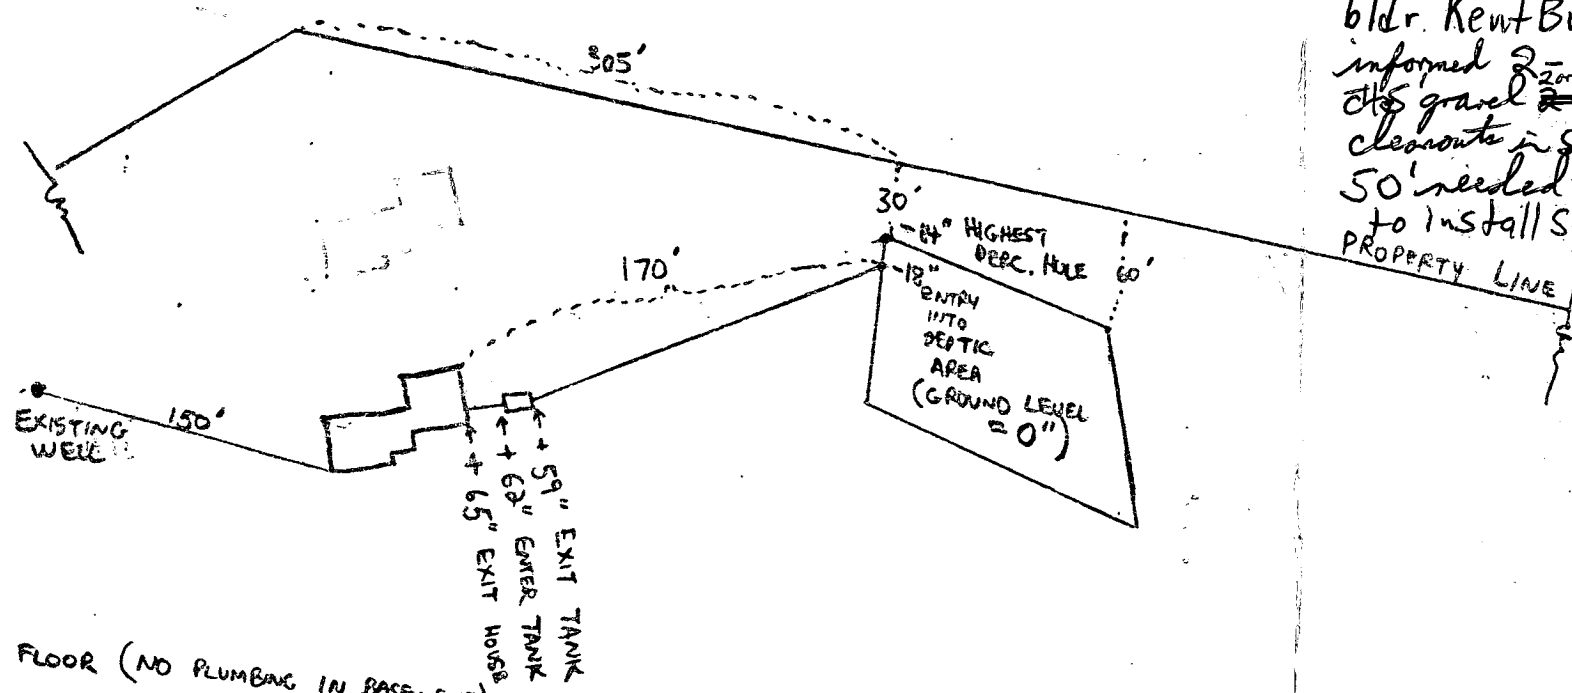 bldr. Kent
informed 2
gravel
cleanouts in
50' needed
to install
PROPERTY LINE
305'
30'
-14" HIGHEST
PERC. HOLE
60'
170'
-18"
ENTRY
INTO
SEPTIC
AREA
(GROUND LEVEL
= 0")
EXISTING
WELL
150'
+ 65" EXIT HOUSE
+ 62" ENTER TANK
+ 59" EXIT TANK
FLOOR (NO PLUMBING IN